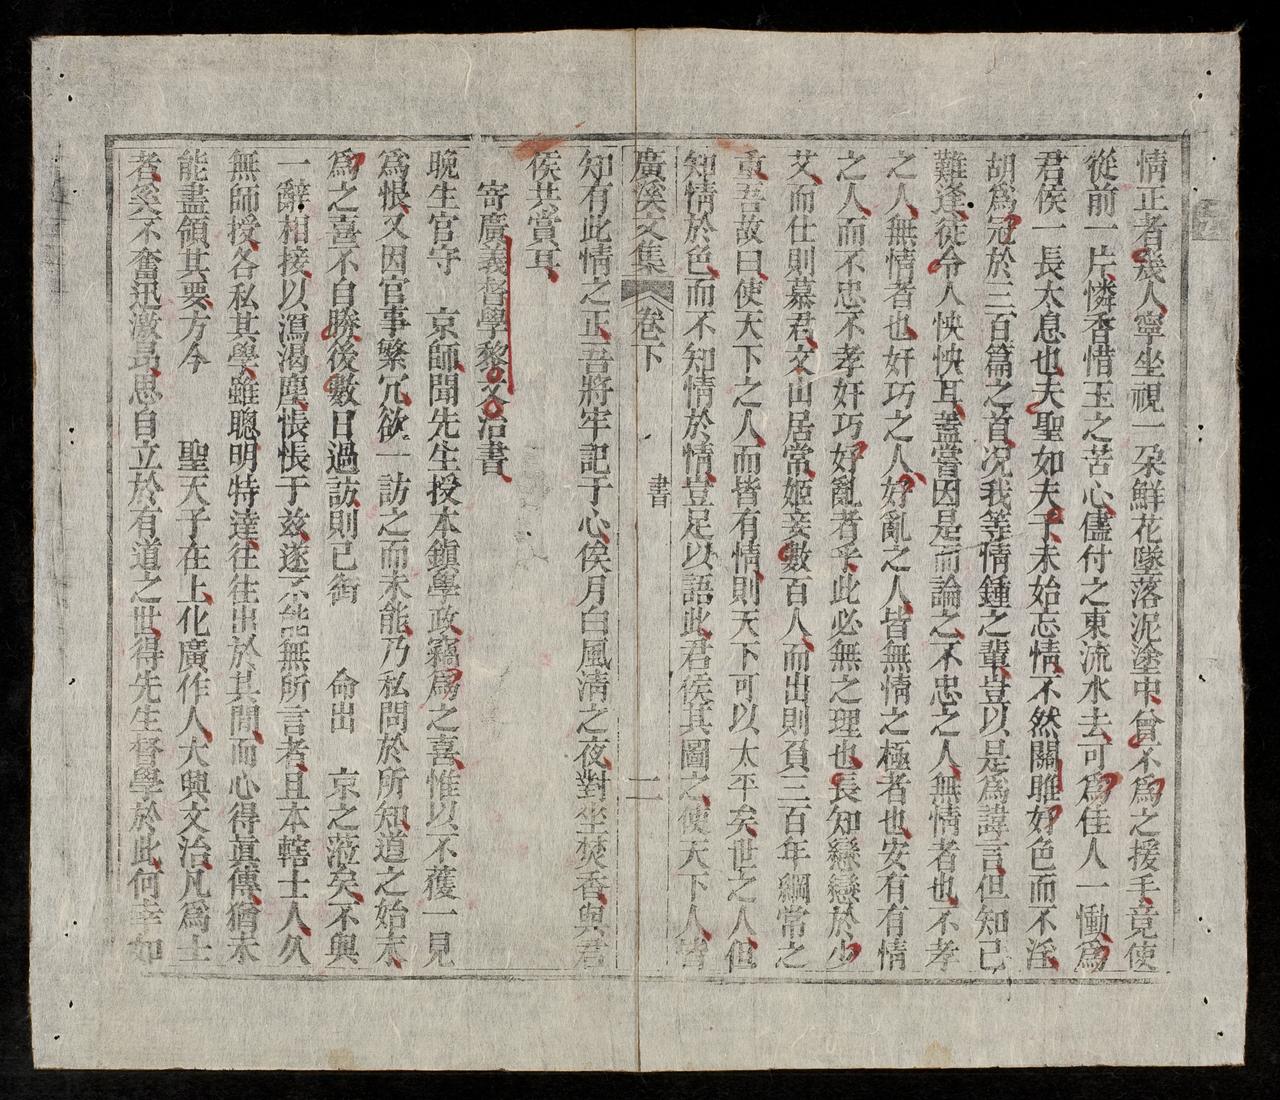 情正者幾人寧坐視一朶鮮花墜落泥塗中曾不爲之援手竟使
從前一片憐香惜玉之苦心儘付之東流水去可爲佳人一慟爲
君侯一長太息也夫聖如夫子未始忘情不然關雎好色而不淫
胡爲冠於三百篇之首况我等情鍾之輩豈以是爲諱言但知己
難逢徒令人怏怏耳蓋嘗因是而論之不忠之人無情者也不孝
之人無情者也奸巧之人好亂之人皆無情之極者也安有有情
之人而不忠不孝奸巧好亂者乎此必無之理也長知戀戀於少
艾而仕則慕君文山居常姬妾數百人而出則負三百年綱常之
重吾故曰使天下之人而皆有情則天下可以太平矣世之人但
知情於色而不知情於情豈足以語此君侯其圖之使天下人皆
廣溪文集 卷下 書 二
知有此情之正吾將牢記于心俟月白風清之夜對坐焚香與君
侯共賞耳
寄廣義督學黎文治書
晚生官守 京師聞先生授本鎭學政竊爲之喜惟以不獲一見
爲恨又因官事繁冗欲一訪之而未能乃私問於所知道之始末
爲之喜不自勝後數日過訪則已銜 命出 京之蒞矣不與
一辭相接以瀉渴塵悵悵于兹遂不能無所言者且本轄士人久
無師授各私其學雖聰明特達往往出於其間而心得眞傳猶未
能盡領其要方今 聖天子在上化廣作人大興文治凡爲士
者奚不奮迅激昂思自立於有道之世得先生督學於此何幸如